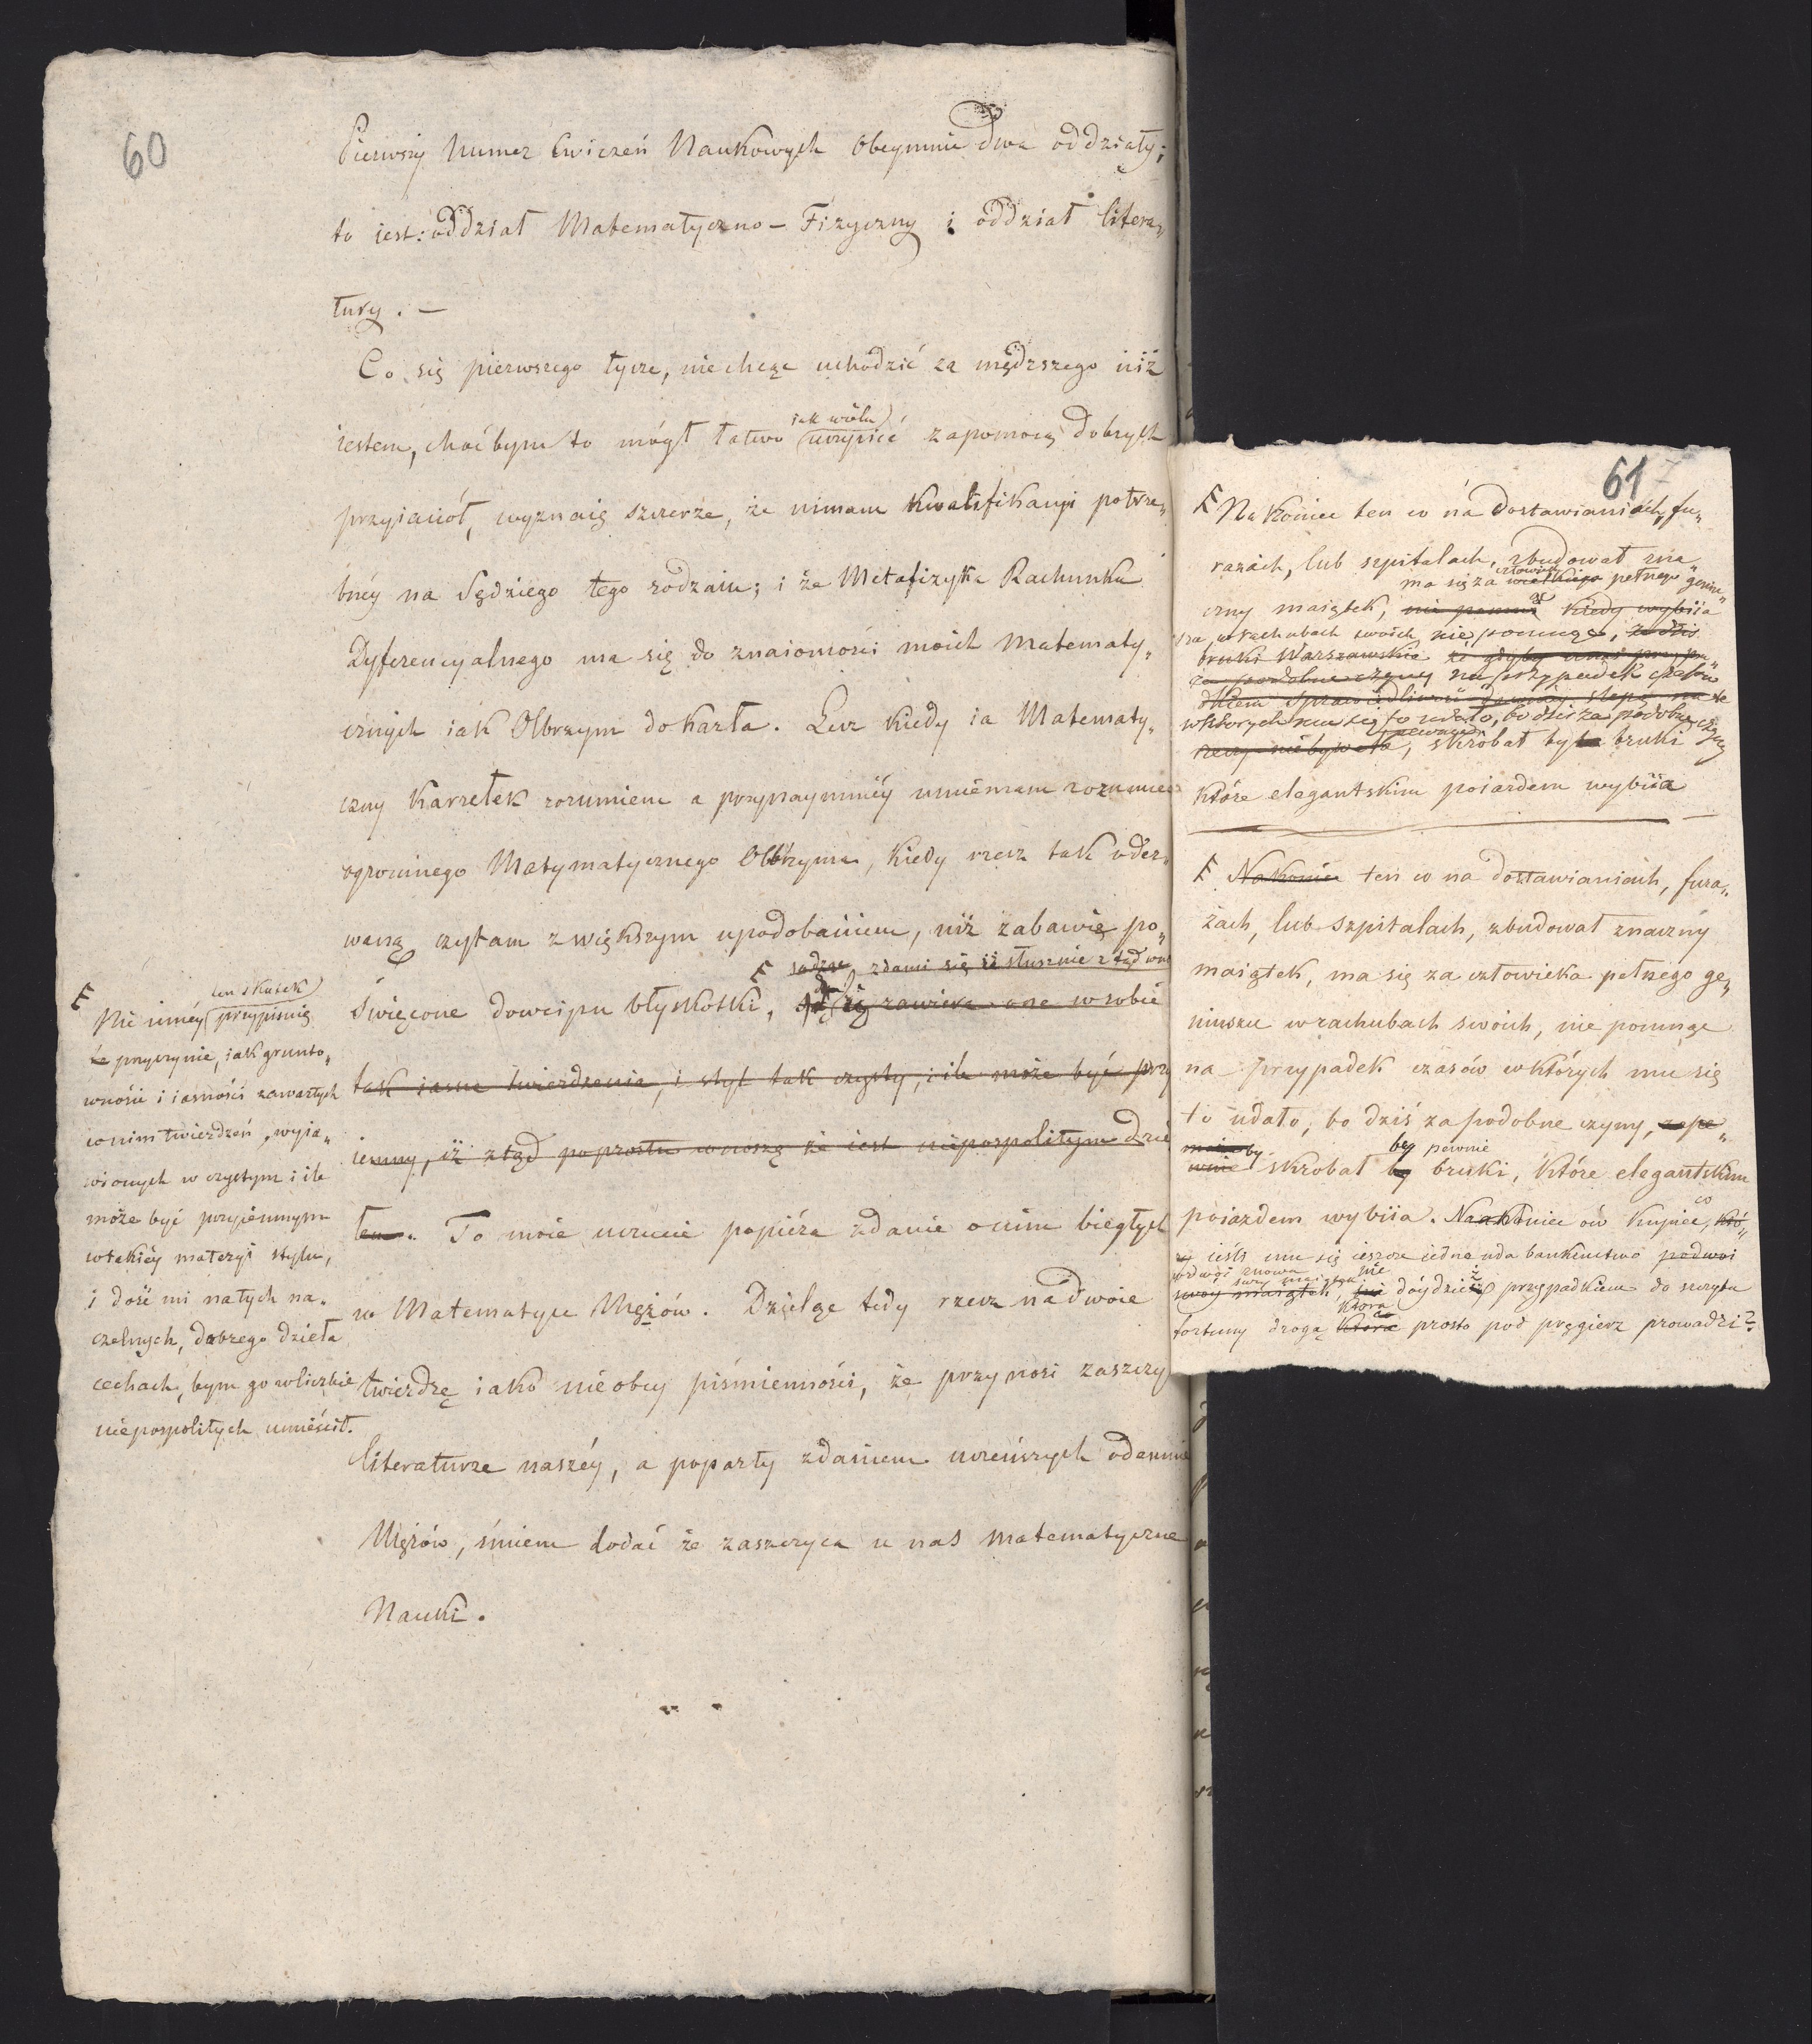 60
Pierwszy Numer Ćwiczeń Naukowych obeymuie dwa oddziały;
to iest: oddział Matematyczno-Fizyczny i oddział litera„
tury. —
Co się pierwszego tycze, niechcąc uchodzić za mędrszego niż
iestem, choćbym to mógł łatwo uczynić zapomocą dobrych
iak wielu
przyiaciół, wyznaię szczerze, że nimam kwalifikacyi potrze„
bnéy na Sędziego tego rodzaiu; i że Metafizyka Rachunku
Dyferencyalnego ma się do znaiomości moich Matematy„
cznych iak Olbrzym do karła. Lecz kiedy ia Matematy„
czny Karzełek rozumiem a przynaymniéy mniemam rozumieć
ogromnego Matymatycznego Olbrzyma, kiedy rzecz tak oder„
waną czytam z większym upodobaniem, niż zabawie po„
sądzę zdami się iż słusznie ztąd
święcone dowcipu błyskotki, iż zawiera one w sobie
tak iasne twierdzenia, i styl tak czysty, i ile może być przy
iemny, iż ztąd poprostu wnoszę że iest niepospolitym dzie
łem. To moie uczucie popiéra zdanie o nim biegłych
w Matematyce Mężów. Dzieląc tedy rzecz na dwoie
twierdzę iako nieobcy piśmienności, że przynosi zaszczyt
literaturze naszéy, a poparty zdaniem uczeńszych odemnie
Mężów, śmiem dodać że zaszczyca u nas matematyczne
Nauki.
ten skutek
Nie inney przypisuię
że przyczynie, iak grunto„
wności i iasności zawartych
w nim twierdzeń, wyia„
wionych w czystym i ile
może być przyiemnym
w takiéy materyi stylu,
i dość mi na tych na„
czelnych, dobrego dzieła
cechach, bym go w liczbie
niepospolitych umieścił.
61
Na koniec ten co na dostawianiach, fu„
rażach, lub szpitalach, zbudował zna„
człowieka
ma się za wielkiego pełnego geniu„
czny maiątek, nie pomni kiedy wybiia
szu w rachubach swoich nie pomnąc, że dziś
bruki Warszawskie że gdyby
za podobne czyny na przypadek czasów
w których mu się to udało, bo dziś za podobne czyny
pewnie
rzeczy niebywałe, skrobał by bruki
które elegantskim poiazdem wybiia
Nakoniec ten co na dostawianiach, fura„
żach, lub szpitalach, zbudował znaczny
maiątek, ma się za człowieka pełnego ge„
niuszu w rachubach swoich, nie pomnąc
na przypadek czasów w których mu się
to udało, bo dziś za podobne czyny, zape„
by pewnie
wnie skrobał by bruki, które elegantskim
poiazdem wybiia. Nakoniec ów kupiec, co któ„
ry ieśli mu się ieszcze iedno uda bankructwo podwoi
znowu
swoy maiątek, nie dóydzie iż przypadkiem do szczytu
która
fortuny drogą która prosto pod pręgierz prowadzi?